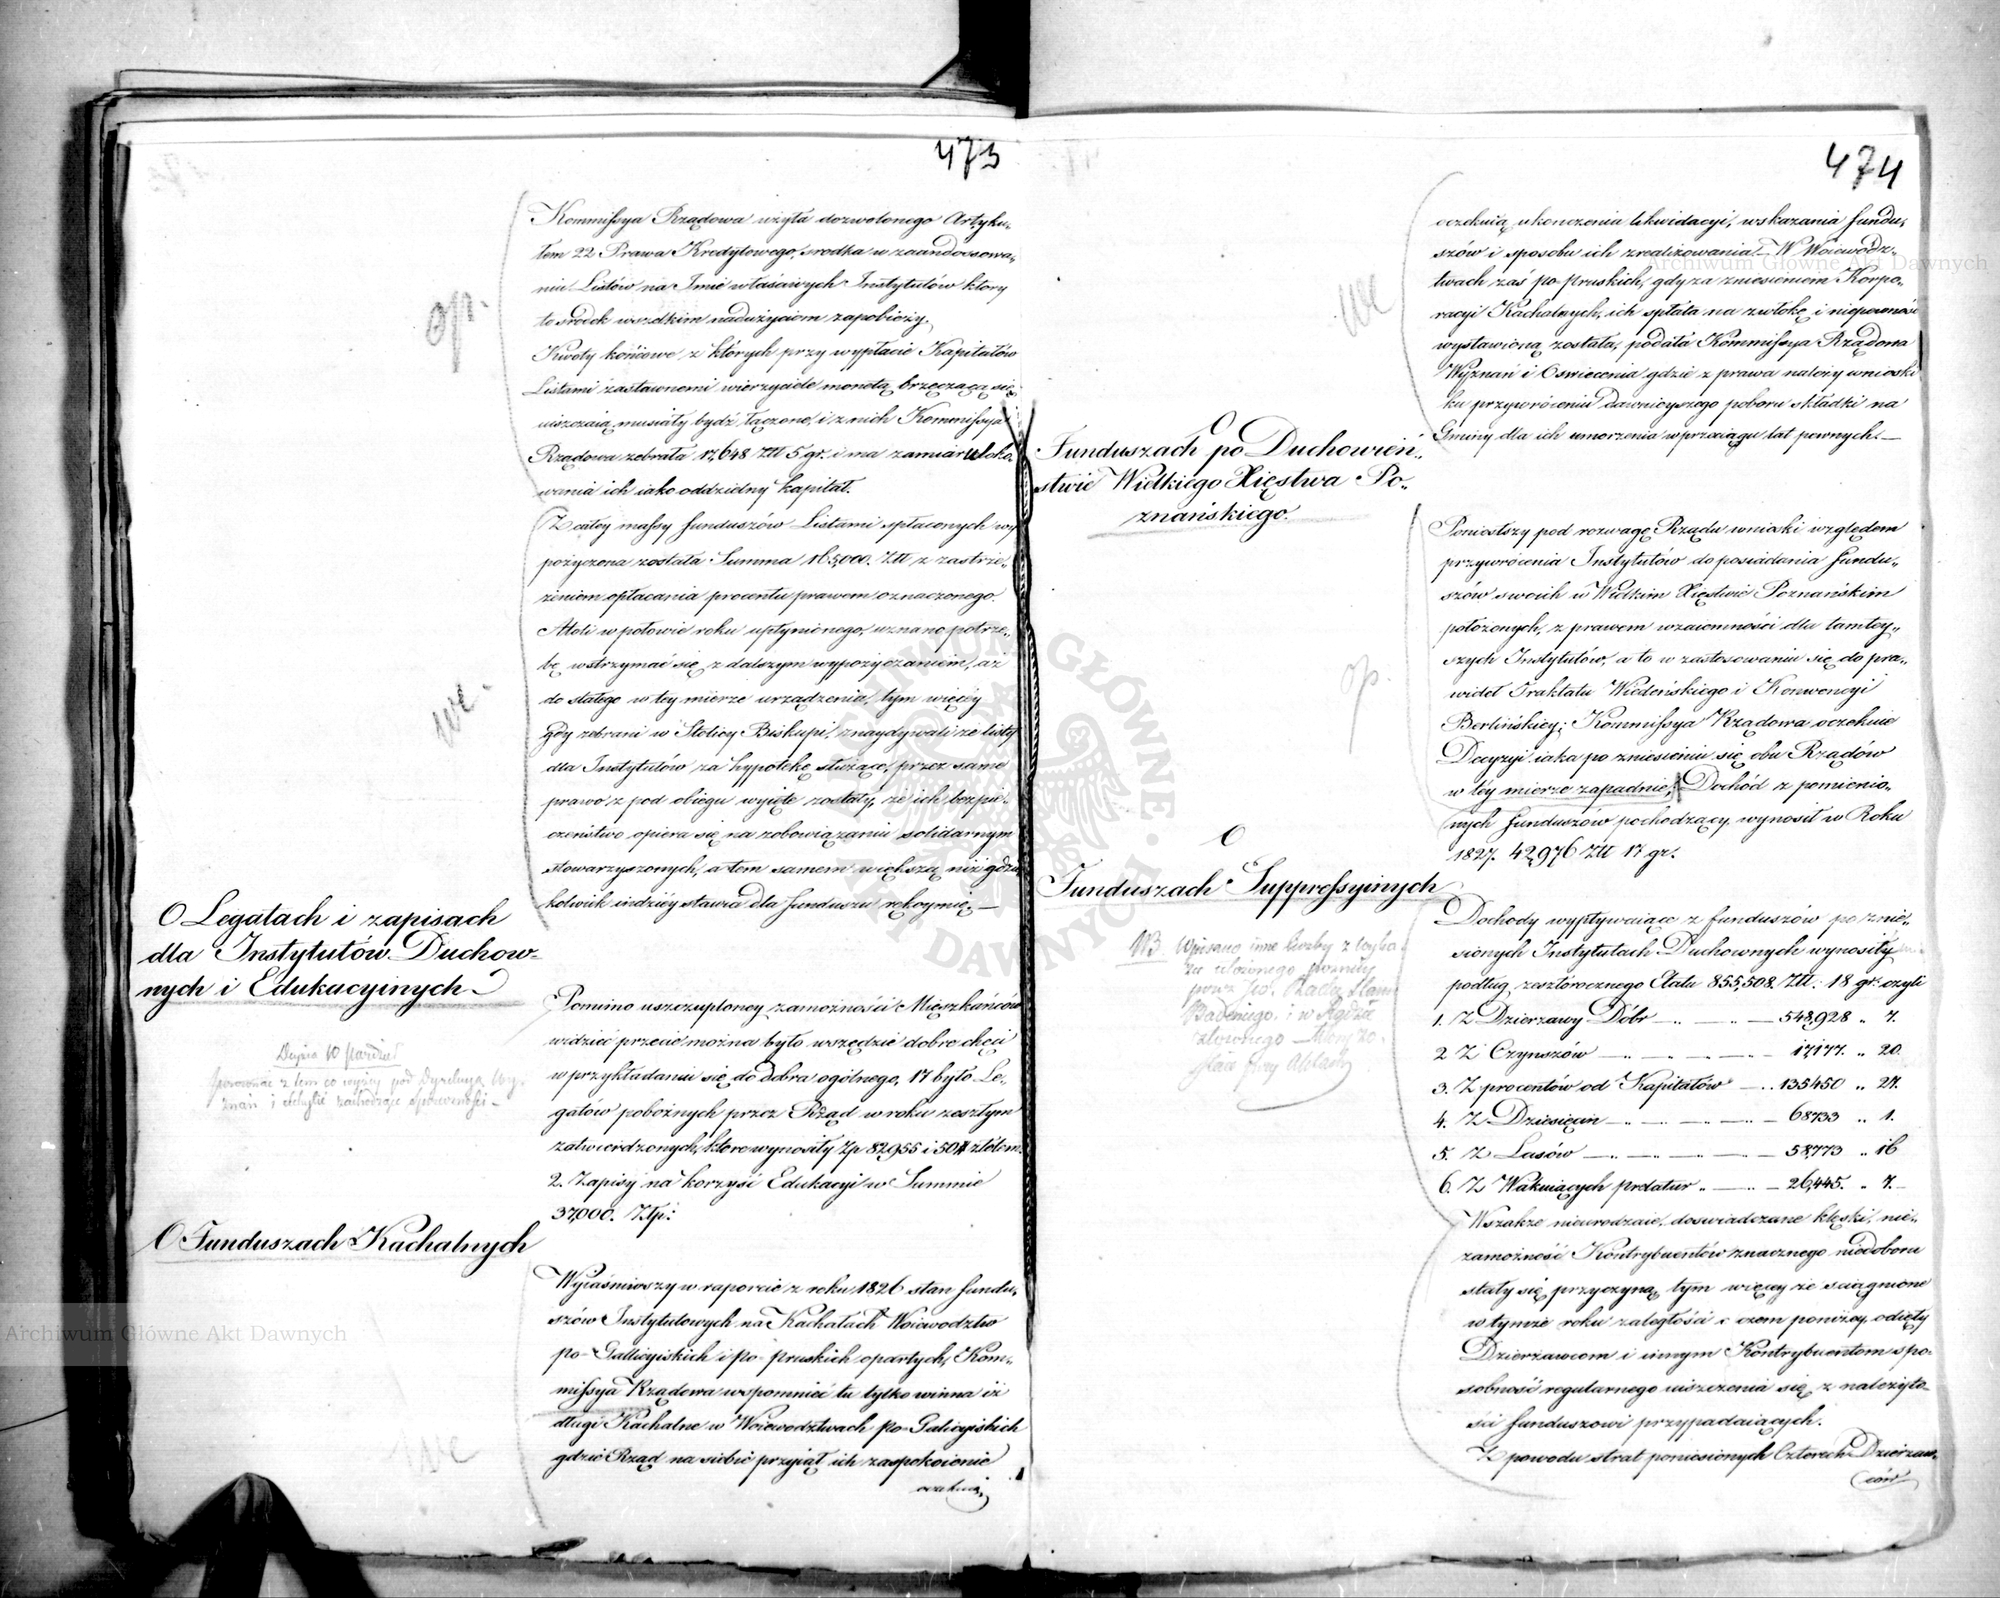 473
Kommissya Rządowa użyła dozwolonego Artyku„
łem 22 Prawa Kredytowego, srodka w zaandossowa„
niu Listów na Imie właściwych Instytutów który
to srodek wszelkim nadużyciom zapobieży.
Kwoty końcowe, z których przy wypłacie Kapitałów
Listami zastawnemi wierzyciele monetą brzęczącą się
uiszczaią musiały bydź łączone, i z nich Kommissya
Rządowa zebrała 17,648 Złł 5 gr. i ma zamiar uloko„
wania ich iako oddzielny kapitał.
Z całey massy funduszów Listami spłaconych wy„
pożyczona została Summa 165,000. Złł z zastrze„
żeniem opłacania procentu prawem oznaczonego.
Atoli w połowie roku upłynionego, uznano potrze„
bę wstrzymać się z dalszym wypożyczaniem, aż
do stałego w tey mierze urządzenia, tym więcéy
gdy zebrani w Stolicy Biskupi, znaydywali że listy
dla Instytutów za hypotekę służące, przez samo
prawo z pod obiegu wyięte zostały, że ich bezpie„
czeństwo opiera się na zobowiązaniu solidarnym
stowarzyszonych, a tem samem większą niż gdzie
kolwiek indziéy stawia dla funduszu rękoymię.—
op.
we.
O Legatach i zapisach
dla Instytutów Duchow„
nych i Edukacyinych
Pomimo uszczuplonéy zamożności Mieszkańców
widzieć przecie można było wszędzie dobre chęci
w przykładaniu się do dobra ogólnego, 17 było Le„
gatów pobożnych przez Rząd w roku zeszłym
zatwierdzonych, które wynosiły Zp 82,955 i 504 złotem
2. Zapisy na korzyść Edukacyi w Summie
37,000. Złp:
O Funduszach Kachalnych
Wyiaśniwszy w raporcie z roku 1826 stan fundu„
szów Instytutowych na Kachałach Woiewodztw
po-Gallicyiskich i po-pruskich opartych, Kom„
missya Rządowa wspomnieć tu tylko winna iż
długi Kachalne w Woiewodztwach po-Galicyiskich
gdzie Rząd na siebie przyiął ich zaspokoienie
oczekuią,
we
474
oczekuią ukonczenia likwidacyi, wskazania fundu„
szów i sposobu ich zrealizowania.— W Woiewodz„
twach zaś po-pruskich, gdy za zniesieniem Korpo„
racyi Kachalnych, ich spłata na zwłokę i niepewność
wystawioną została, podała Kommissya Rządowa
Wyznań i Oswiecenia gdzie z prawa należy wnioski
ku przywróceniu dawnieyszego poboru składki na
Gminy dla ich umorzenia w przeciągu lat pewnych.—
we
O
Funduszach po Duchowień„
stwie Wielkiego Xięstwa Po„
znańskiego.
Poniosłszy pod rozwagę Rządu wnioski względem
przywrócenia Instytutów do posiadania fundu„
szów swoich w Wielkim Xięstwie Poznańskim
położonych, z prawem wzaiemności dla tamtey„
szych Instytutów, a to w zastosowaniu się do pra„
wideł Traktatu Wiedeńskiego i Konwencyi
Berlińskiey; Kommissya Rządowa oczekuie
Decyzyi iaka po zniesieniu się obu Rządów
w téy mierze zapadnie, Dochód z pomienio„
nych funduszów pochodzący wynosił w Roku
1827. 42,976 Złł 17 gr.
op.
O
Funduszach Suppressyinych
NB. Wpisano inne liczby z wyka„
zu złożonego pozniéy
przez
Badeniego. i w
Dochody wypływaiące z funduszów po znie„
sionych Instytutach Duchownych wynosiły
podług zeszłorocznego Etatu 855,508. Złł: 18 gr. czyli
1. Z Dzierzawy Dóbr — 548,928 „ 7.
2 Z Czynszów — 17,177. „ 20.
3. Z procentów od Kapitałów — 135,450 „ 27.
4. Z Dziesięcin — 68,733 „ 1.
5. Z Lasów — 58,773 „ 16
6. Z Wakuiących prelatur — 26,445. „ 7.
Wszakże nieurodzaie, doświadczane klęski, nie„
zamożność Kontrybuentów znacznego niedoboru
stały się przyczyną, tym więcey że sciągnione
w tymże roku zaległości o czem poniżey, odięły
Dzierżawcom i innym Kontrybuentom spo„
sobność regularnego uiszczenia się z należyto„
ści funduszowi przypadaiących.
Z powodu strat poniesionych Czterech Dzierzaw„
ców
Archiwum Główne Akt Dawnych
Archiwum Główne Akt Dawnych
ARCHIWUM GŁÓWNE · AKT DAWNYCH ·